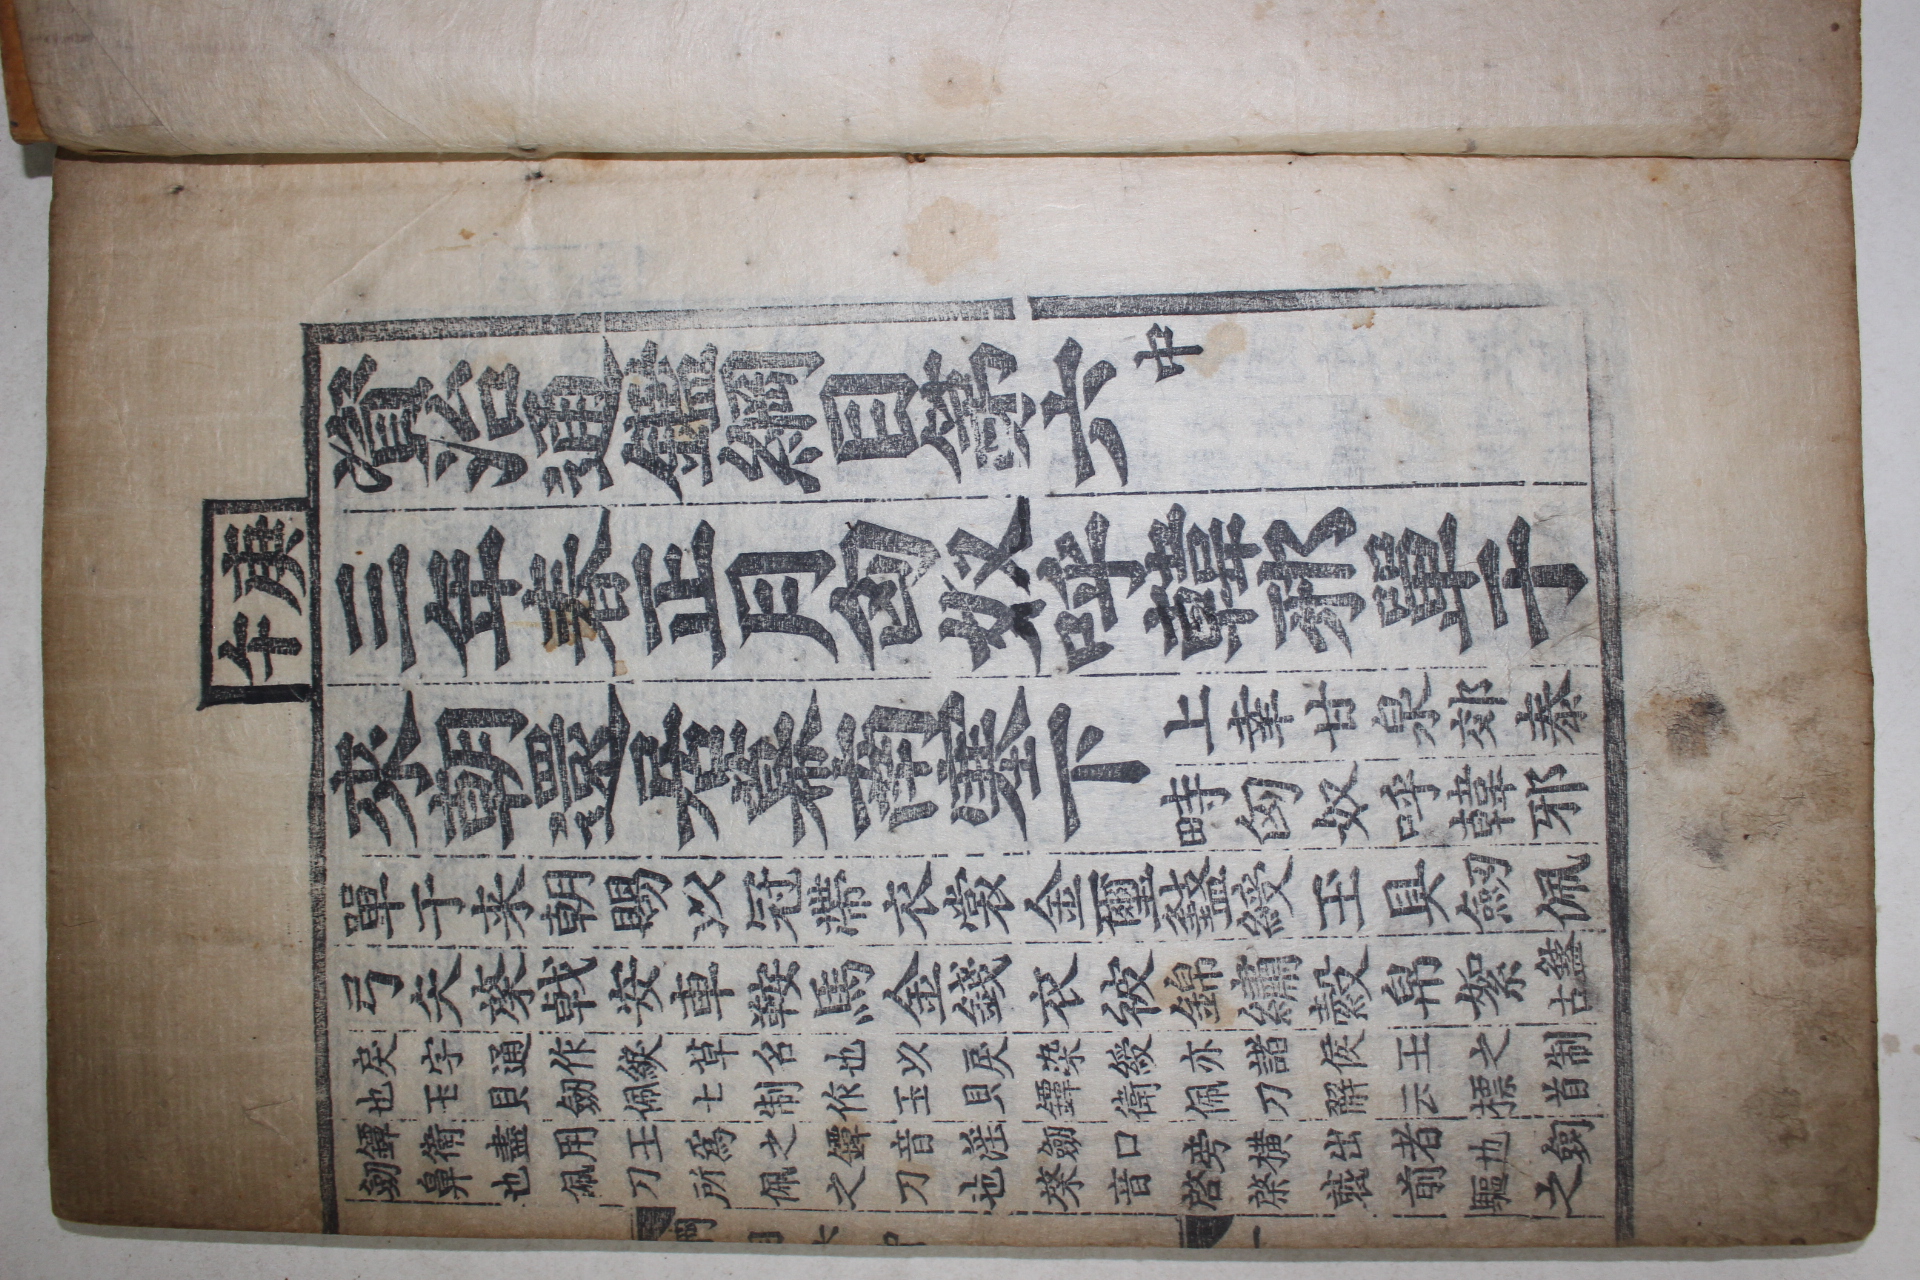 庚午
資治通鑑綱目第六中
三年春正月匈奴呼韓邪單于
來朝還居幕南塞下
上幸甘泉郊泰
畤匈奴呼韓邪
單于来朝賜以冠帶衣裳金璽盭綬玉具劒佩
弓矢棨戟安車鞍馬金錢衣被錦繡縠帛絮盭古
戾字通作綟草名也以戾染綬亦諸侯王之制
也玉貝劒佩七制作玉貝鐔衛佩刀解云摽首
鐔衛盡用玉爲之鐔音淫劒口旁横出者也
劒鼻也佩刀所佩之刀也棨音啓棨戟前驅之
綱目六中
一